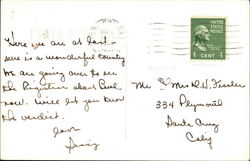 Here we are at last.
sure is a wonderful country
We are going over to see
the Register about Bud
now. Will let you know
the verdict.
Love
UNITED STATES
POSTAGE
1 CENT 1
Mr & Mrs R.H. Fessler
334 Plymouth
Santa Cruz
Calif